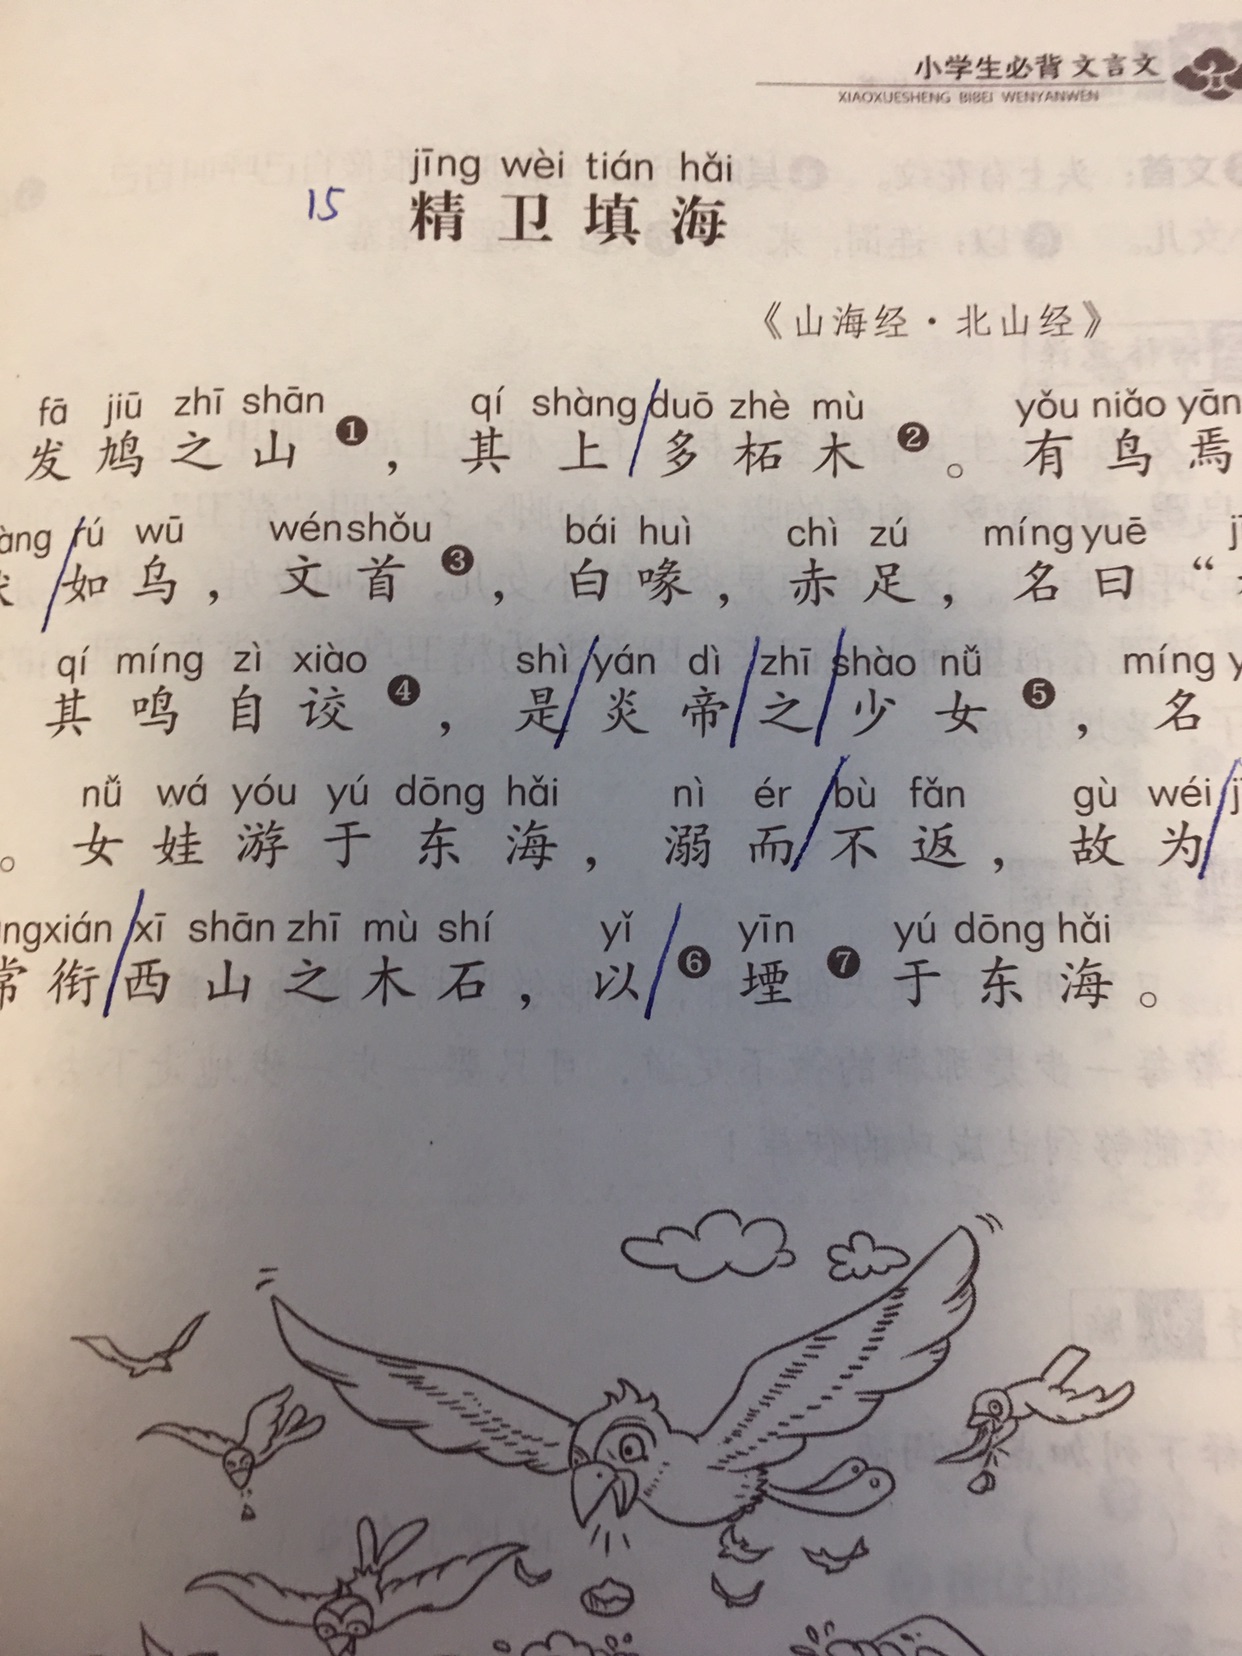 小学生必背 文言文
XIAOXUESHENG BIBEI WENYANWEN
jīng wèi tián hǎi
15 精 卫 填 海
《山海经·北山经》
fā jiū zhī shān qí shàng duō zhè mù yǒu niǎo yān
发 鸠 之 山 ❶ , 其 上 / 多 柘 木 ❷ 。 有 鸟 焉
rú wū wén shǒu bái huì chì zú míng yuē
/ 如 乌 , 文 首 ❸ , 白 喙 , 赤 足 , 名 曰 “
qí míng zì xiào shì yán dì zhī shào nǚ míng
其 鸣 自 詨 ❹ , 是 / 炎 帝 / 之 / 少 女 ❺ , 名
nǚ wá yóu yú dōng hǎi nì ér bù fǎn gù wéi
。 女 娃 游 于 东 海 , 溺 而 / 不 返 , 故 为 /
xián xī shān zhī mù shí yǐ yīn yú dōng hǎi
常 衔 / 西 山 之 木 石 , 以 / ❻ 堙 ❼ 于 东 海 。